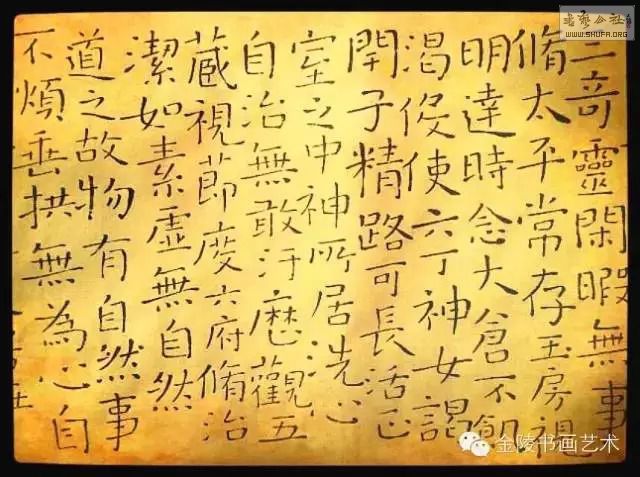 三奇靈閑暇無事
脩太平常存玉房視
明達時念大倉不飢
渴伇使六丁神女謁
閇子精路可長活正
室之中神所居洗心
自治無敢汙歷觀五
藏視節度六府脩治
潔如素虛無自然
道之故物有自然事
不煩垂拱無為心自
WWW.SHUFA.ORG
金陵书画艺术